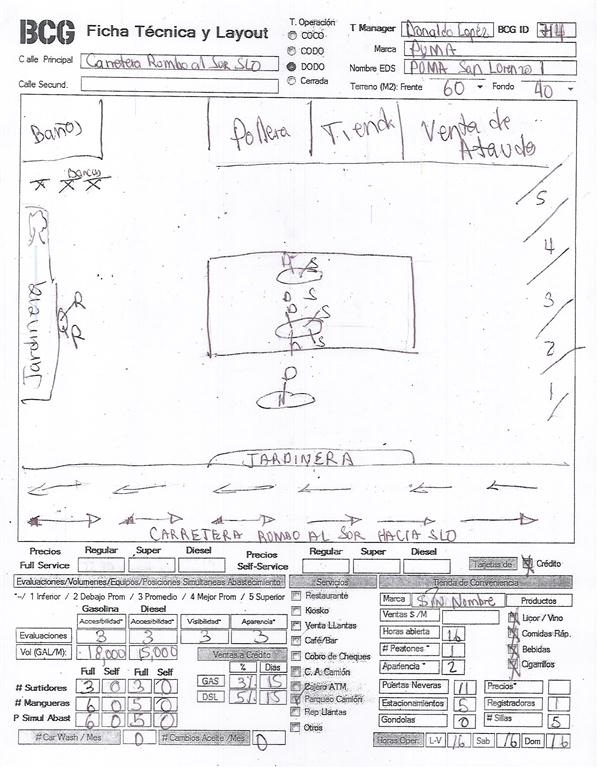 BCG Ficha Técnica y Layout
T. Operación
COCO
CODO
DODO
Cerrada
T Manager Donaldo Lopéz BCG ID 714
Marca PUMA
Nombre EDS PUMA San Lorenzo 1
Calle Principal Carretera Rumbo al Sur SLO
Calle Secund.
Terreno (M2): Frente 60 Fondo 40
Baños
Pollera
Tienda
Venta de
Ataudo
Bancas
X X X
5
4
3
2
1
Jardinera
D S
D S
D S
S
D
JARDINERA
CARRETERA RUMBO AL SUR HACIA SLO
Precios Regular Super Diesel Precios Regular Super Diesel
Full Service Self-Service
Tarjetas de Crédito
Evaluaciones/Volumenes/Equipos/Posiciones Simultaneas Abastecimiento
*-/ 1 Inferior / 2 Debajo Prom / 3 Promedio / 4 Mejor Prom / 5 Superior
Gasolina Diesel
Accesibilidad* Accesibilidad* Visibilidad* Aparencia*
Evaluaciones 3 3 3 3
Vol (GAL/M): 18,000 15,000
Ventas a Crédito
% Dias
GAS 3% 15
DSL 5% 15
Full Self Full Self
# Surtidores 3 0 3 0
# Mangueras 6 0 5 0
P Simul Abast 6 0 5 0
# Car Wash / Mes 0 # Cambios Aceite /Mes 0
Servicios
Restaurante
Kiosko
Venta Llantas
Café/Bar
Cobro de Cheques
C. A. Camión
Cajero ATM
Parqueo Camión
Rep Llantas
Otros
Tienda de Conveniencia
Marca S/N Nombre
Productos
Ventas $ /M
Horas abierta 16
# Peatones * 1
Apariencia * 2
Liçor / Vino
Comidas Ráp.
Bebidas
Cigarrillos
Puertas Neveras 11 Precios*
Estacionamientos 5 Registradoras 1
Gondolas 0 # Sillas 5
Horas Oper. L-V 16 Sab 16 Dom 16